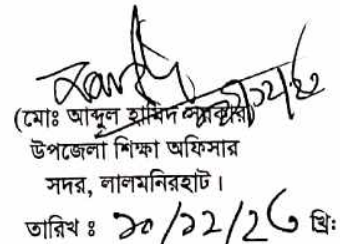 (মোঃ আব্দুল হামিদ সরকার)
উপজেলা শিক্ষা অফিসার
সদর, লালমনিরহাট।
তারিখ ঃ ১০/১২/ খ্রি: